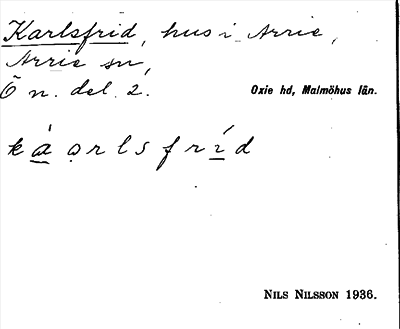 Karlsfrid, hus i Arrie,
Arrie sn,
Ö n. del. 2.
Oxie hd, Malmöhus län.
kàꞷrlsfríd
NILS NILSSON 1936.